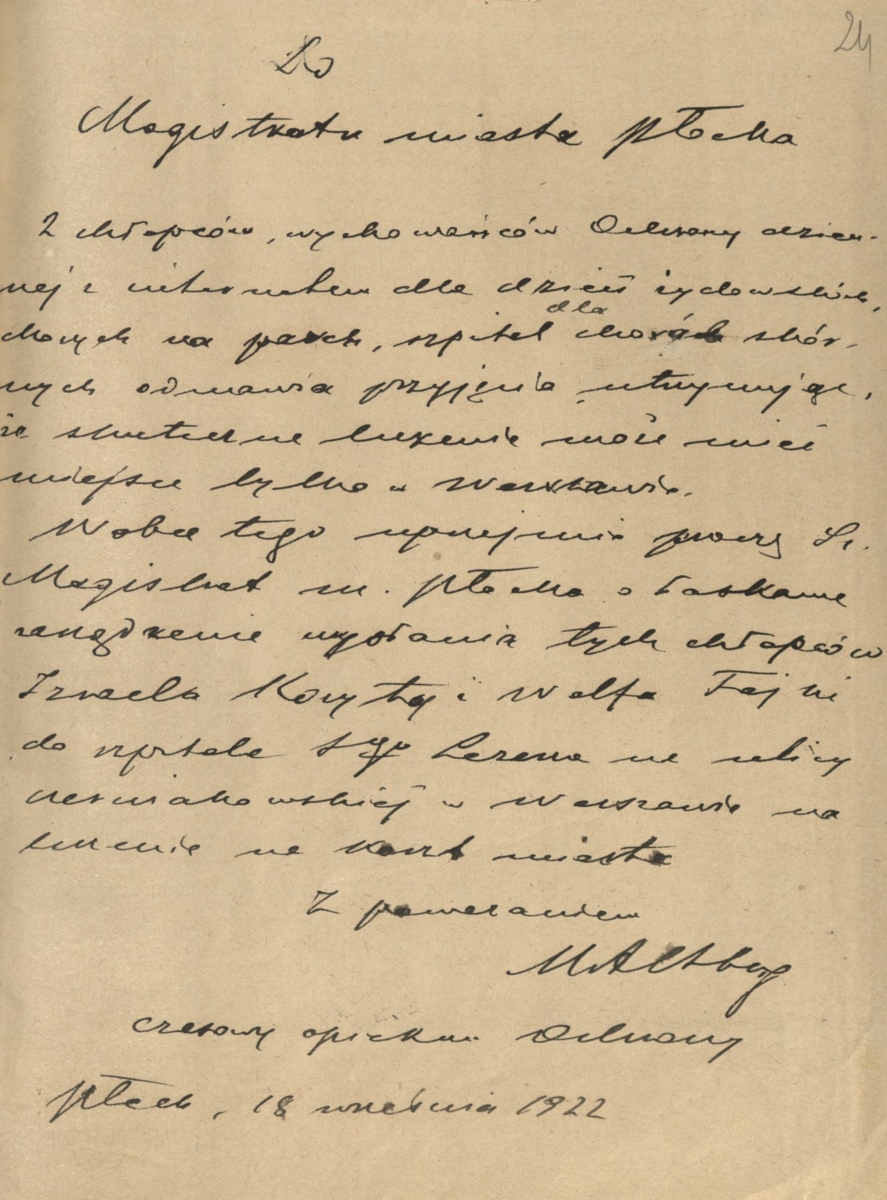 24
Do
Magistratu miasta Płocka
2 chłopców, wychowańców Ochrony dzien-
nej z internatem dla dzieci żydowskich,
chorych na parch, szpital dla chorób skór-
nych odmawia przyjęcia utrzymując,
że skuteczne leczenie może mieć
miejsce tylko w Warszawie.
Wobec tego uprzejmie proszę Sz.
Magistrat m. Płocka o łaskawe
zarządzenie wysłania tych chłopców
Izraela Koryty i Wolfa Fajki
do szpitala Sgo Łazarza na ulicy
Czerniakowskiej w Warszawie na
leczenie na koszt miasta
Z poważaniem
M Altberg
czasowy opiekun Ochrony
Płock, 18 września 1922